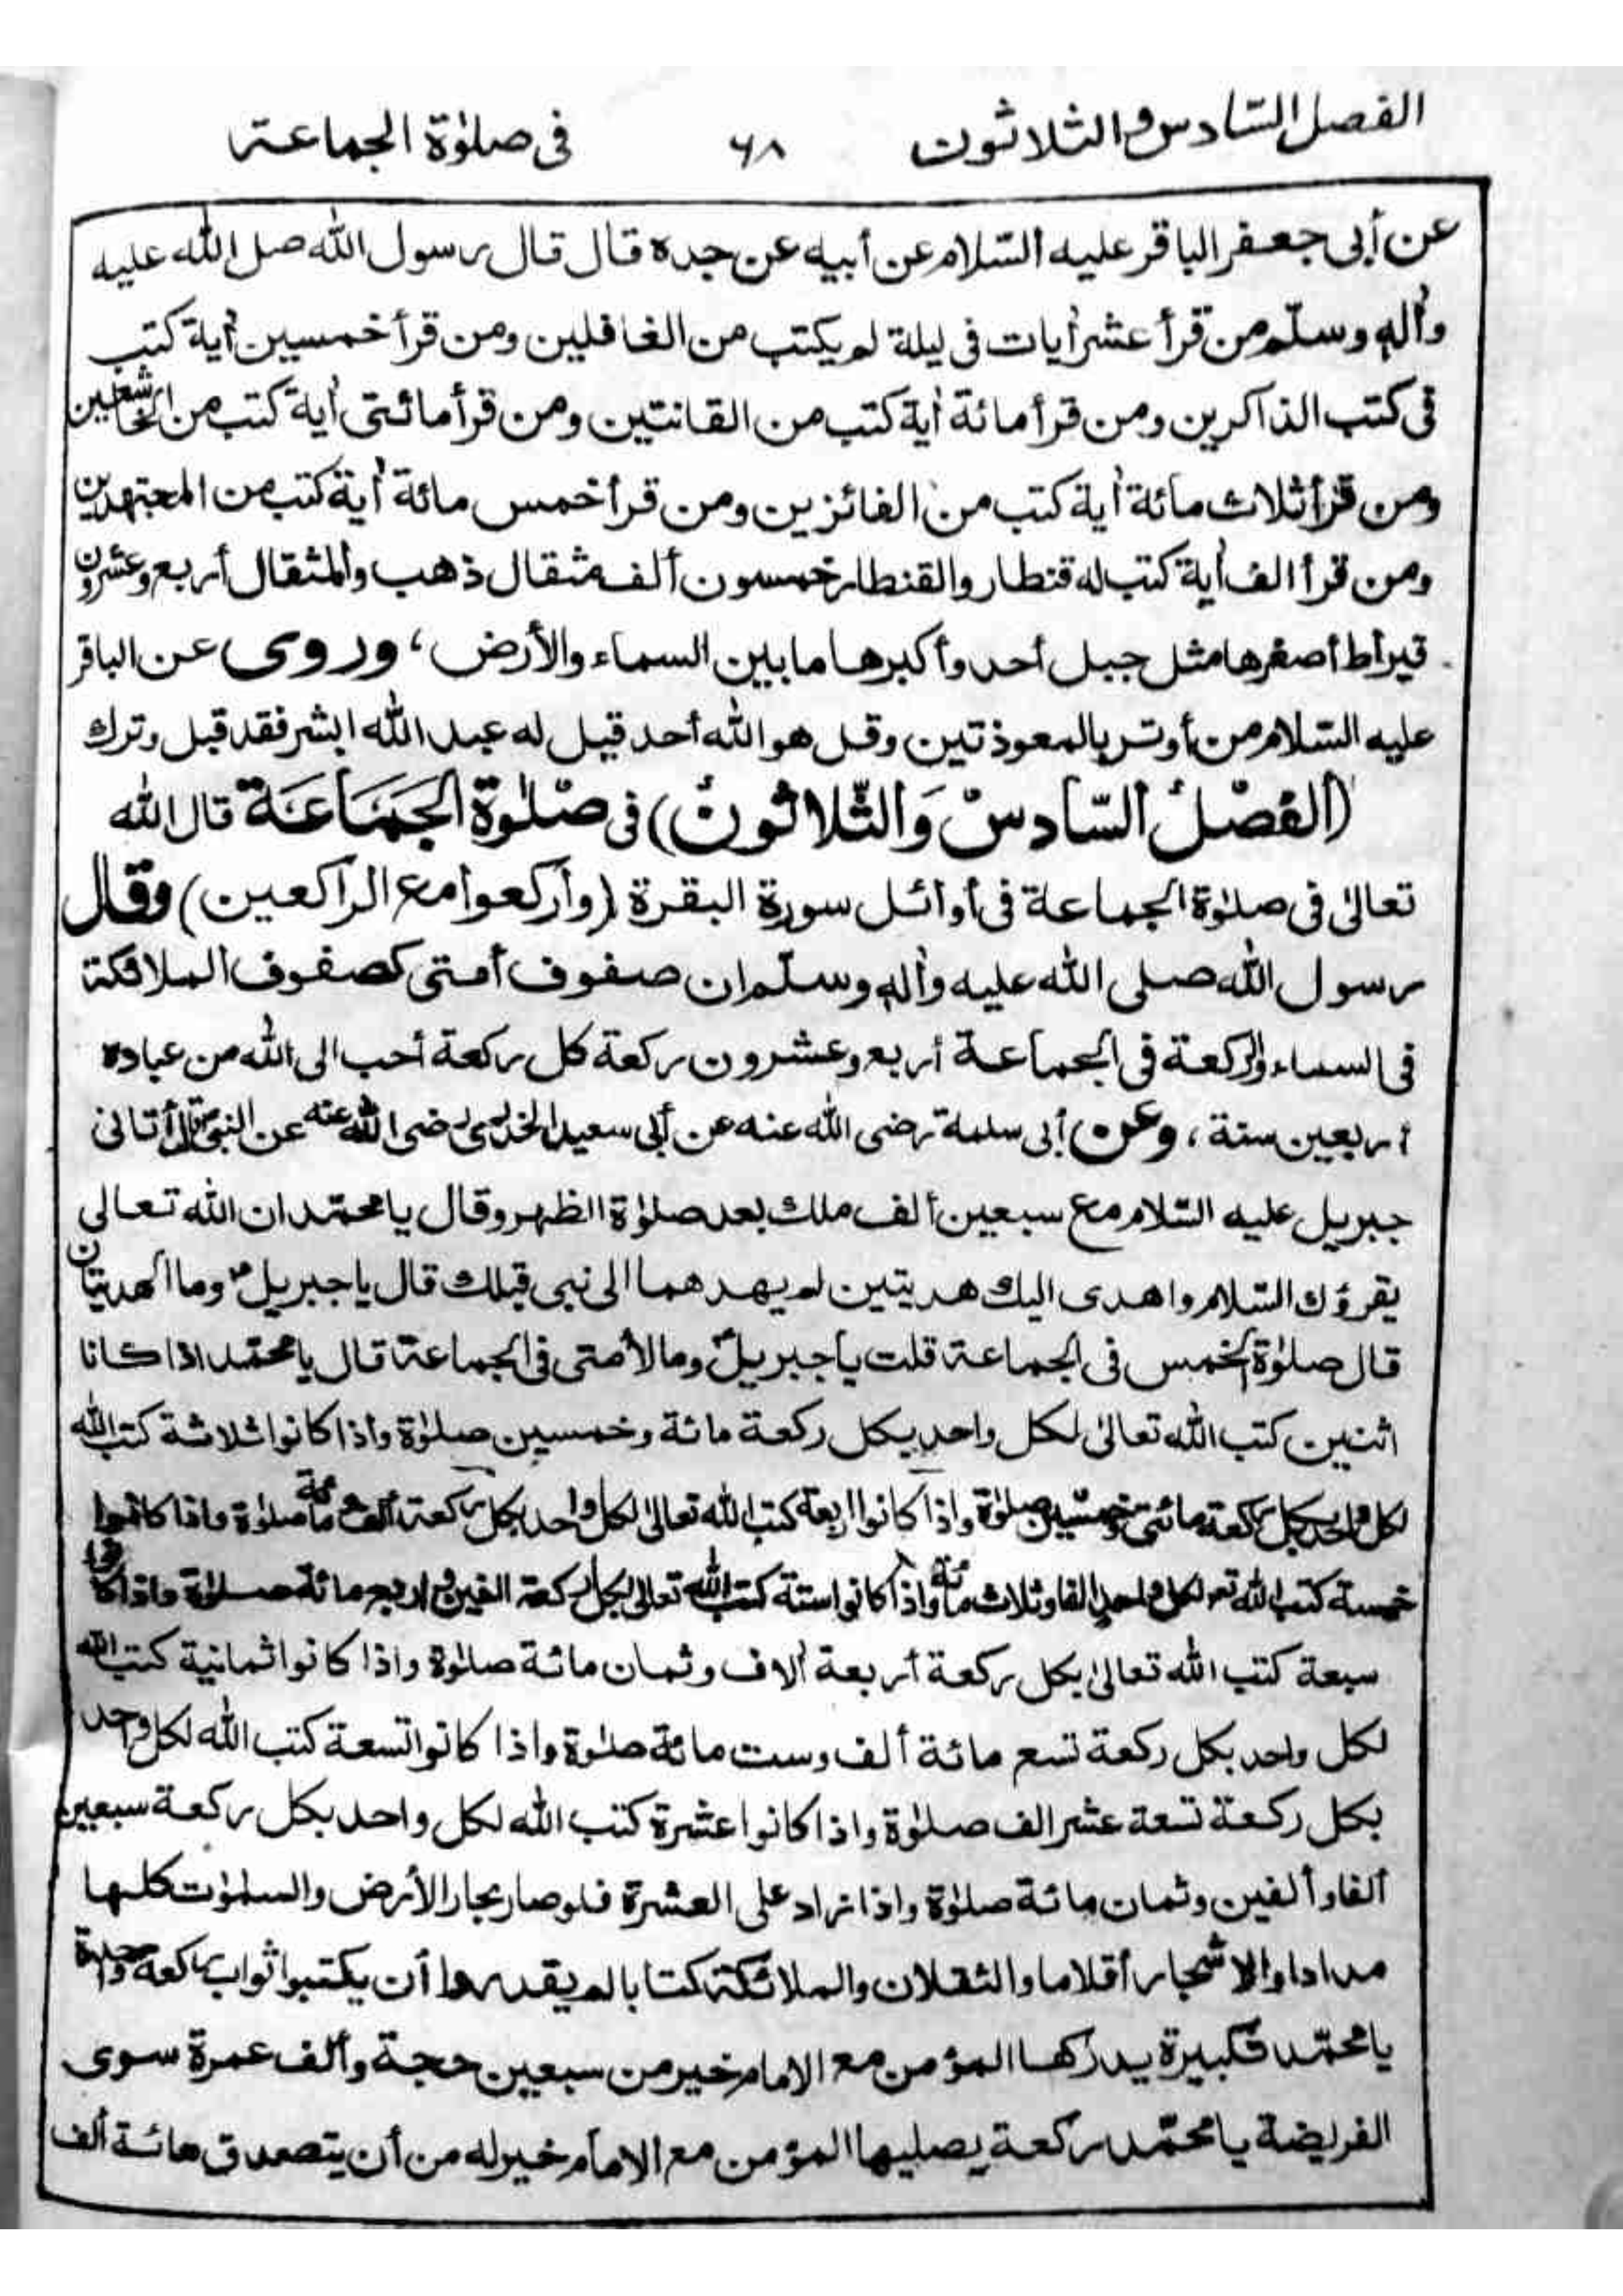 الفصل السّادس والثلاثون ٦٨ فى صلوٰة الجماعة
عن أبى جعفر الباقر عليه السّلام عن أبيه عن جده قال قال رسول الله صل الله عليه
وأله وسلّم من قرأ عشر أيات فى ليلة لم يكتب من الغافلين ومن قرأ خمسين أية كتب
فى كتب الذاكرين ومن قرأ مائة أية كتب من القانتين ومن قرأ مائتى أية كتب من الخاشعين
ومن قرأ ثلاث مائة أية كتب من الفائزين ومن قرأ خمس مائة أية كتب من المجتهدين
ومن قرأ الف أية كتب له قنطار والقنطار خمسون ألف مثقال ذهب والمثقال أربع وعشرون
قيراط أصغرها مثل جبل أحد وأكبرها ما بين السماء والأرض، وروى عن الباقر
عليه السّلام من أوتر بالمعوذتين وقل هو الله أحد قيل له عبد الله ابشر فقد قبل وترك
(الفصْلُ السّادسُ وَالثّلاثونُ) فى صْلوٰة الجَمَاعَة قال الله
تعالىٰ فى صلوٰة الجماعة فى أوائل سورة البقرة (وأركعوا مع الراكعين) وقال
رسول الله صلى الله عليه وأله وسلّم ان صفوف أمتى كصفوف الملائكة
فى السماء والركعة فى الجماعة أربع وعشرون ركعة كل ركعة أحب الى الله من عبادة
أربعين سنة، وعن أبى سلمة رضى الله عنه عن أبى سعيد الخدرى رضى الله عنه عن النبى قال أتانى
جبريل عليه السّلام مع سبعين ألف ملك بعد صلوٰة الظهر وقال يا محمّد ان الله تعالى
يقرؤك السّلام واهدى اليك هديتين لم يهدهما الى نبى قبلك قال يا جبريل وما الهديتان
قال صلوٰة الخمس فى الجماعة قلت يا جبريل وما لأمتى فى الجماعة قال يا محمّد اذا كانا
اثنين كتب الله تعالىٰ لكل واحد بكل ركعة مائة وخمسين صلوٰة وأذا كانوا ثلاثة كتب الله
لكل واحد بكل ركعة مائتى وخمسين صلوٰة واذا كانوا اربعة كتب الله تعالىٰ لكل واحد بكل ركعة ألف مائة صلوٰة واذا كانوا
خمسة كتب الله تعـ لكل واحد الفا وثلاث مائة واذا كانوا ستة كتب الله تعالى بكل ركعة الفين و اربع مائة صلوٰة واذا كانوا
سبعة كتب الله تعالىٰ بكل ركعة أربعة ألاف وثمان مائة صلوٰة واذا كانوا ثمانية كتب الله
لكل واحد بكل ركعة تسع مائة ألف وست مائة صلوٰة واذا كانوا تسعة كتب الله لكل واحد
بكل ركعة تسعة عشر الف صلوٰة واذا كانوا عشرة كتب الله لكل واحد بكل ركعة سبعين
ألفا وألفين وثمان مائة صلوٰة واذا زاد على العشرة فلو صار بحار الأرض والسمٰوٰت كلها
مدادا والاشجار أقلاما والثقلان والملائكة كتابا لم يقدروا أن يكتبوا ثواب ركعة واحدة
يا محمّد تكبيرة يدركها المؤمن مع الامام خير من سبعين حجة وألف عمرة سوى
الفريضة يا محمّد ركعة يصليها المؤمن مع الامام خير له من أن يتصدق مائة ألف